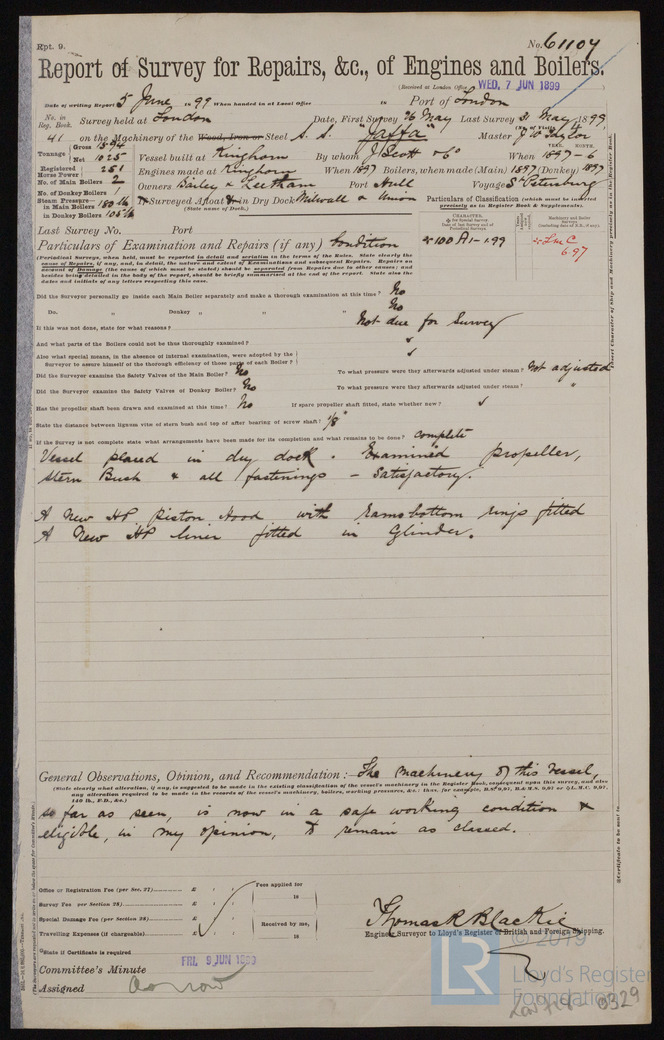 Rpt. 9.
No. 61104
Report of Survey for Repairs, &c., of Engines and Boilers.
(Received at London Office WED. 7 JUN 1899
Date of writing Report 5 June 1899 When handed in at Local Office in Port of London
No. in Reg. Book. Survey held at London Date, First Survey 26 May Last Survey 31 May 1899
41 on the Machinery of the Wood, Iron or Steel S. S. "Jaffa" Master J W Taylor
Tonnage Gross 1594
Net 1025
Vessel built at Kinghorn By whom J Scott & Co When 1897-6
Registered Horse Power 251
Engines made at Kinghorn When 1897 Boilers, when made (Main) 1897 (Donkey) 1897
No. of Main Boilers 2
No. of Donkey Boilers 1
Owners Bailey & Leetham Port Hull Voyage St Petersburg
Steam Pressure in Main Boilers 180 lb
in Donkey Boilers 105 lb
If Surveyed Afloat or in Dry Dock Millwall & Union
(State name of Dock.)
Particulars of Classification (which must be inserted precisely as in Register Book & Supplements).
Last Survey No. Port
Particulars of Examination and Repairs (if any) Condition
100 A1-1.99
LMC
6.97
(Periodical Surveys, when held, must be reported in detail and seriatim in the terms of the Rules. State clearly the
cause of Repairs, if any, and, in detail, the nature and extent of Examinations and subsequent Repairs. Repairs on
account of Damage (the cause of which must be stated) should be separated from Repairs due to other causes; and
besides being detailed in the body of the report, should be briefly summarised at the end of the report. State also the
dates and initials of any letters respecting this case.
Did the Surveyor personally go inside each Main Boiler separately and make a thorough examination at this time? No
Do. „ Donkey „ „ „ No
If this was not done, state for what reasons? Not due for Survey
And what parts of the Boilers could not be thus thoroughly examined? ✓
Also what special means, in the absence of internal examination, were adopted by the
Surveyor to assure himself of the thorough efficiency of those parts of each Boiler? ✓
Did the Surveyor examine the Safety Valves of the Main Boiler? No To what pressure were they afterwards adjusted under steam? Not adjusted
Did the Surveyor examine the Safety Valves of Donkey Boiler? No To what pressure were they afterwards adjusted under steam? "
Has the propeller shaft been drawn and examined at this time? No If spare propeller shaft fitted, state whether new? ✓
State the distance between lignum vitæ of stern bush and top of after bearing of screw shaft? 1/8"
If the Survey is not complete state what arrangements have been made for its completion and what remains to be done? complete
Vessel placed in dry dock. Examined propeller,
stern Bush & all fastenings - Satisfactory.
A New HP piston Hood with Ramsbottom rings fitted
A New HP liner fitted in Cylinder.
General Observations, Opinion, and Recommendation:— The machinery of this vessel,
(State clearly what alteration, if any, is suggested to be made in the existing classification of the vessel's machinery in the Register Book, consequent upon this survey, and also
any alteration required to be made in the records of the vessel's machinery, boilers, working pressures, &c.: thus, for example, B.S. 9,97, B.& M.S. 9,97 or L.M.C. 9,97,
140 lb., F.D., &c.)
so far as seen, is now in a safe working condition &
eligible, in my opinion, to remain as classed.
Office or Registration Fee (per Sec. 27) £ : :
Survey Fee (per Section 28) £ : :
Special Damage Fee (per Section 28) £ : :
Travelling Expenses (if chargeable) £ : :
Fees applied for
18
Received by me,
18
State if Certificate is required
Thomas R Blackie
Engineer Surveyor to Lloyd's Register of British and Foreign Shipping.
Committee's Minute FRI. 9 JUN 1899
Assigned as now
LR
© 2019
Lloyd's Register
Foundation
0329